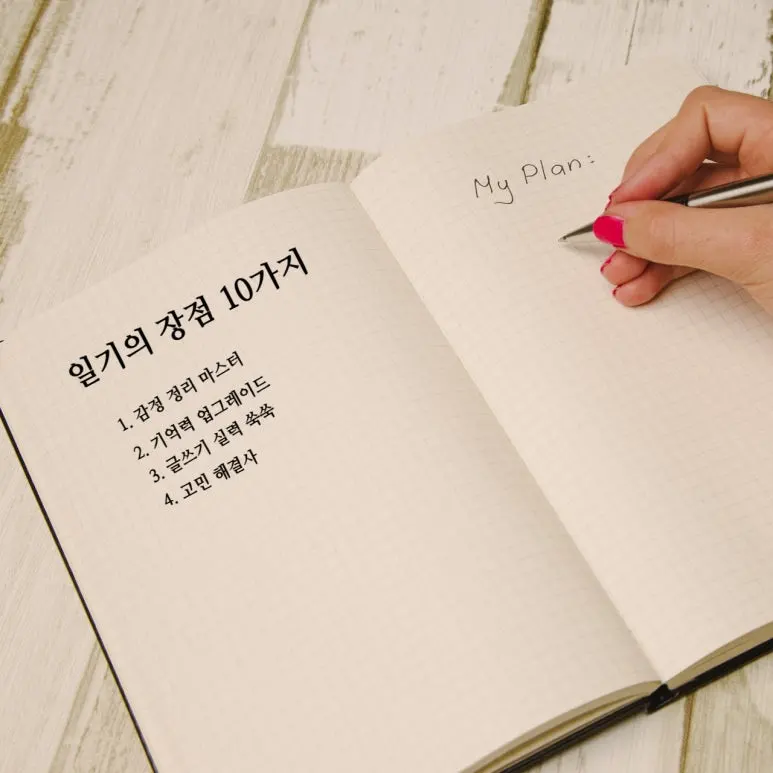 일기의 장점 10가지
1. 감정 정리 마스터
2. 기억력 업그레이드
3. 글쓰기 실력 쑥쑥
4. 고민 해결사
My Plan: